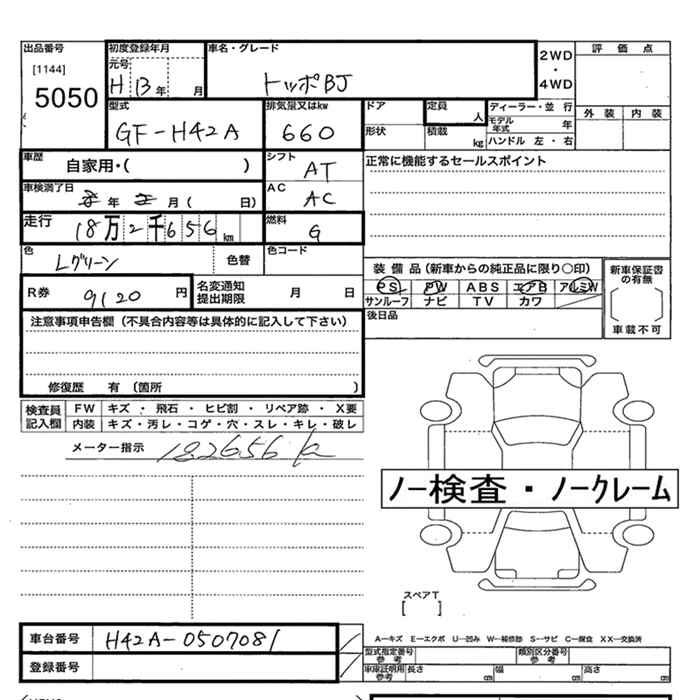 出品番号
[1144]
5050
初度登録年月
元号
H 13 年 月
車名・グレード
トッポBJ
2WD
・
4WD
評価点
外装 内装
型式
GF-H42A
排気量又はkw
660
ドア
形状
定員
人
積載
kg
ディーラー・並 行
モデル
年式
年
ハンドル 左・右
車歴
自家用・( )
シフト
AT
正常に機能するセールスポイント
車検満了日
年 月 ( 日)
AC
AC
走行
18万2千656 km
燃料
G
色
Lグリーン
色替
色コード
装備品(新車からの純正品に限り○印)
PS PW ABS エアB アルミW
サンルーフ ナビ TV カワ
新車保証書
の有無
車載不可
R券
9120 円
名変通知
提出期限
月 日
後日品
注意事項申告欄(不具合内容等は具体的に記入して下さい)
修復歴 有 (箇所 )
検査員
記入欄
FW キズ ・ 飛石 ・ ヒビ割 ・ リペア跡 ・ X要
内装 キズ・汚レ・コゲ・穴・スレ・キレ・破レ
メーター指示
182656 k
ノー検査・ノークレーム
スペアT
[ ]
車台番号
H42A-0507081
登録番号
A—キズ E—エクボ U—凹み W—補修跡 S—サビ C—腐食 XX—交換済
型式指定番号
参考
類別区分番号
参考
車庫証明用
参考
長さ cm
幅 cm
高さ cm